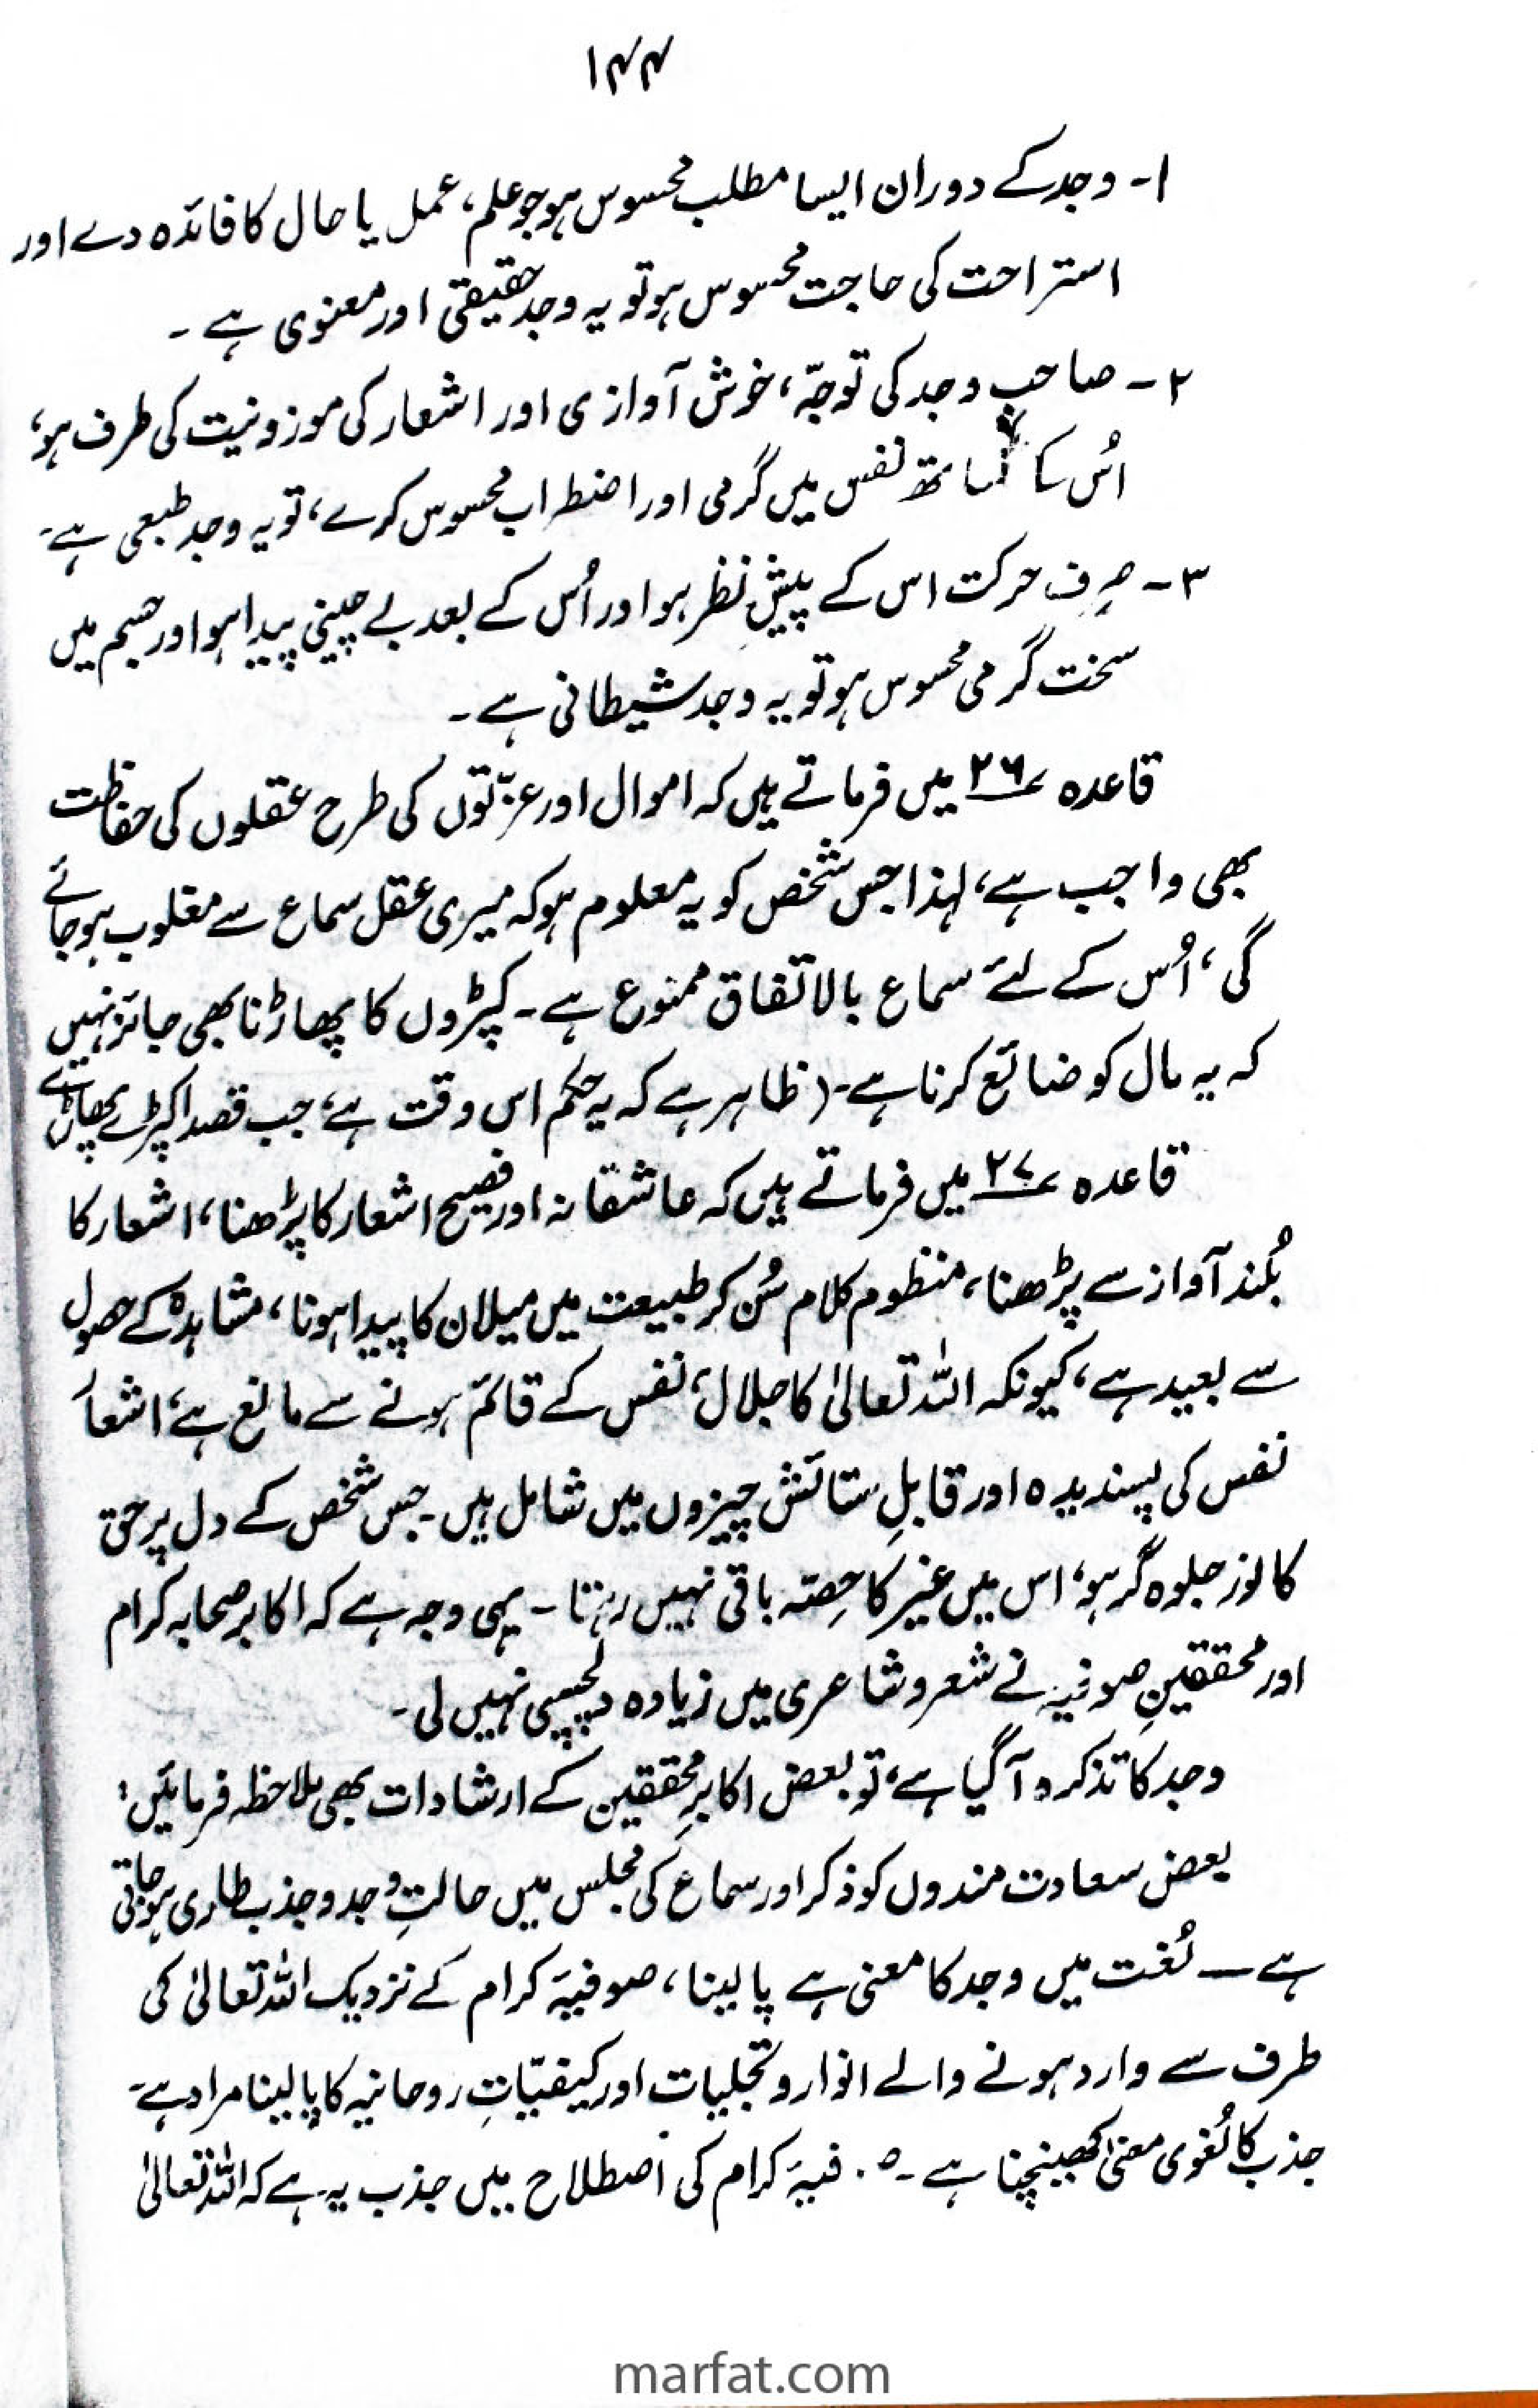 ۱۴۴
۱۔ وجد کے دوران ایسا مطلب محسوس ہو جو علم، عمل یا حال کا فائدہ دے اور
استراحت کی حاجت محسوس ہو تو یہ وجد حقیقی اور معنوی ہے۔
۲۔ صاحبِ وجد کی توجّہ، خوش آوازی اور اشعار کی موزونیت کی طرف ہو،
اُس کا ساتھ نفس میں گرمی اور اضطراب محسوس کرے، تو یہ وجد طبعی ہے۔
۳۔ صِرف حرکت اس کے پیشِ نظر ہو اور اُس کے بعد بے چینی پیدا ہو اور جسم میں
سخت گرمی محسوس ہو تو یہ وجد شیطانی ہے۔
قاعدہ ۲۶ میں فرماتے ہیں کہ اموال اور عزّتوں کی طرح عقلوں کی حفاظت
بھی واجب ہے، لہذا جس شخص کو یہ معلوم ہو کہ میری عقل سماع سے مغلوب ہو جائے
گی، اُس کے لئے سماع بالاتفاق ممنوع ہے۔ کپڑوں کا پھاڑنا بھی جائز نہیں
کہ یہ مال کو ضائع کرنا ہے۔ (ظاہر ہے کہ یہ حکم اس وقت ہے، جب قصداً کپڑے پھاڑے
قاعدہ ۲۷ میں فرماتے ہیں کہ عاشقانہ اور فصیح اشعار کا پڑھنا، اشعار کا
بُلند آواز سے پڑھنا، منظوم کلام سُن کر طبیعت میں میلان کا پیدا ہونا، مشاہدہ کے حصول
سے بعید ہے، کیونکہ اللہ تعالیٰ کا جلال، نفس کے قائم ہونے سے مانع ہے، اشعار
نفس کی پسندیدہ اور قابلِ ستائش چیزوں میں شامل ہیں۔ جس شخص کے دل پر حق
کا نور جلوہ گر ہو، اس میں غیر کا حِصّہ باقی نہیں رہتا۔ یہی وجہ ہے کہ اکابر صحابہ کرام
اور محققینِ صوفیہ نے شعر و شاعری میں زیادہ دلچسپی نہیں لی۔
وجد کا تذکرہ آگیا ہے، تو بعض اکابرِ محققین کے ارشادات بھی ملاحظہ فرمائیں:
بعض سعادت مندوں کو ذکر اور سماع کی مجلس میں حالتِ وجد و جذب طاری ہو جاتی
ہے — لُغت میں وجد کا معنی ہے پا لینا، صوفیۂ کرام کے نزدیک اللہ تعالیٰ کی
طرف سے وارد ہونے والے انوار و تجلیات اور کیفیّاتِ روحانیہ کا پا لینا مراد ہے۔
جذب کا لُغوی معنیٰ کھینچنا ہے۔ فیۂ کرام کی اصطلاح میں جذب یہ ہے کہ اللہ تعالیٰ
marfat.com